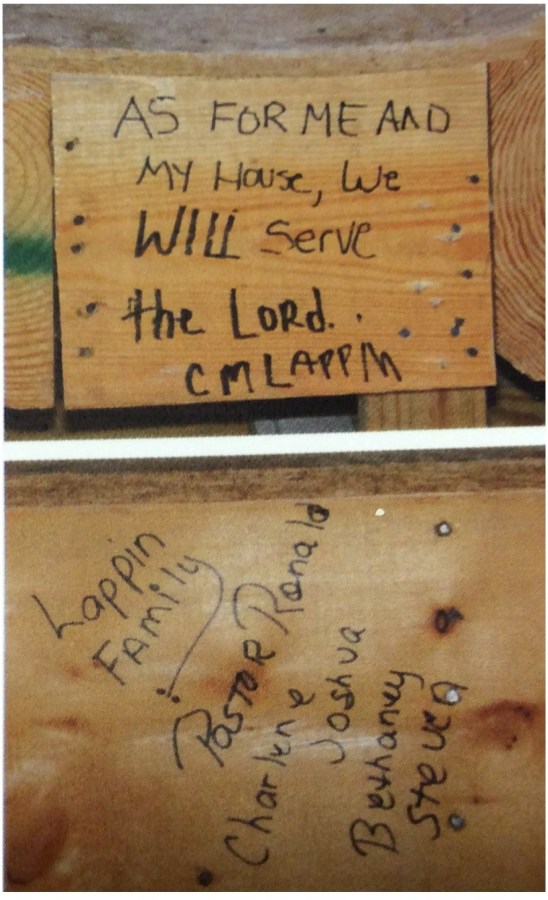 AS FOR ME AND
MY House, We
WILL Serve
the LORD. .
CMLAPPIN
Lappin
FAMILY:
PASTOR Ronald
Charlene
Joshua
Bethaney
Steven